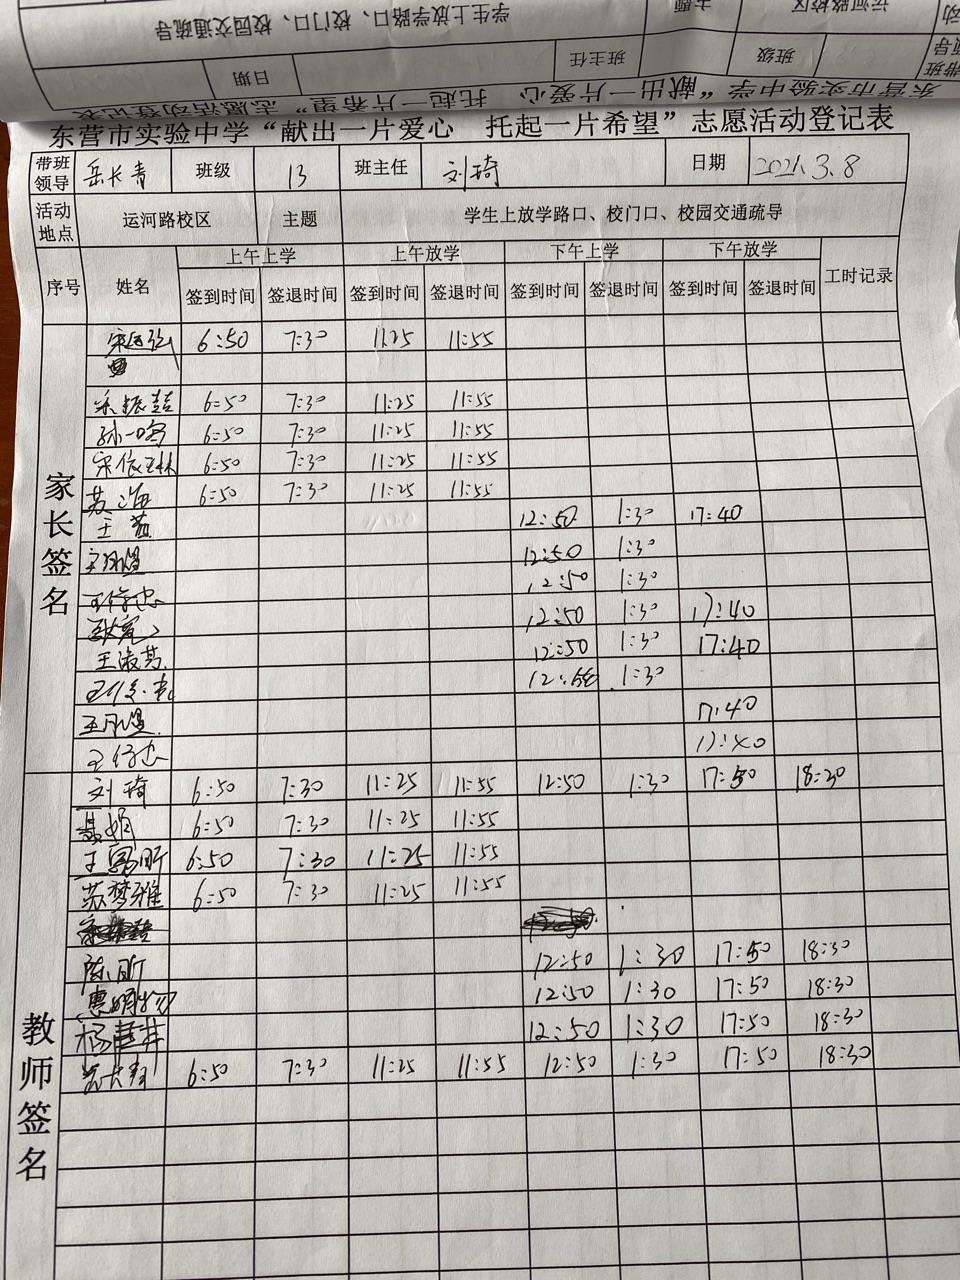 学生上放学路口、校门口、校园交通疏导
主题
运河路校区
日期
班主任
班级
带班领导
东营市实验中学“献出一片爱心 托起一片希望”志愿活动登记表
东营市实验中学“献出一片爱心 托起一片希望”志愿活动登记表
带班领导 岳长青 班级 13 班主任 刘琦 日期 2021.3.8
活动地点 运河路校区 主题 学生上放学路口、校门口、校园交通疏导
序号 姓名 上午上学 上午放学 下午上学 下午放学 工时记录
签到时间 签退时间 签到时间 签退时间 签到时间 签退时间 签到时间 签退时间
家长签名
6:50 7:30 11:25 11:55
宋振喆 6:50 7:30 11:25 11:55
孙一鸣 6:50 7:30 11:25 11:55
宋依琳 6:50 7:30 11:25 11:55
苏海 6:50 7:30 11:25 11:55
王 12:50 1:30 17:40
12:50 1:30
王传忠 12:50 1:30
12:50 1:30 17:40
王淑芬 12:50 1:30 17:40
12:50 1:30
17:40
王传忠 17:40
教师签名
刘琦 6:50 7:30 11:25 11:55 12:50 1:30 17:50 18:30
聂娟 6:50 7:30 11:25 11:55
6:50 7:30 11:25 11:55
苏梦雅 6:50 7:30 11:25 11:55
陈昕 12:50 1:30 17:50 18:30
12:50 1:30 17:50 18:30
12:50 1:30 17:50 18:30
6:50 7:30 11:25 11:55 12:50 1:30 17:50 18:30